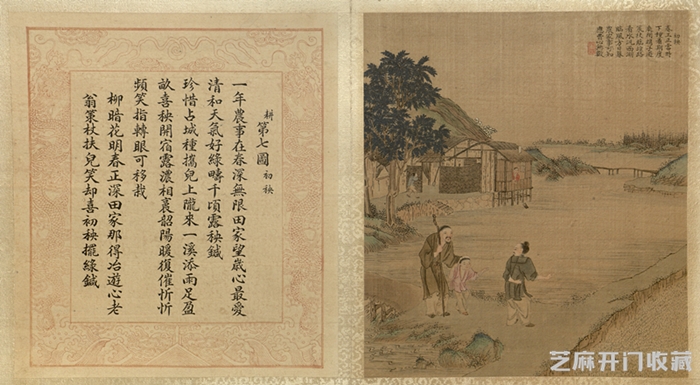 耕 第七圖 初秧
一年農事在春深無限田家望歲心最愛
清和天氣好綠疇千頃露秧鍼
珍惜占城種攜兒上隴來一溪添雨足盈
畝喜秧開宿露濃相裛韶陽暖復催忻忻
頻笑指轉眼可移栽
柳暗花明春正深田家那得冶遊心老
翁策杖扶兒笑却喜初秧擢綠鍼
初秧
芝麻开门收藏